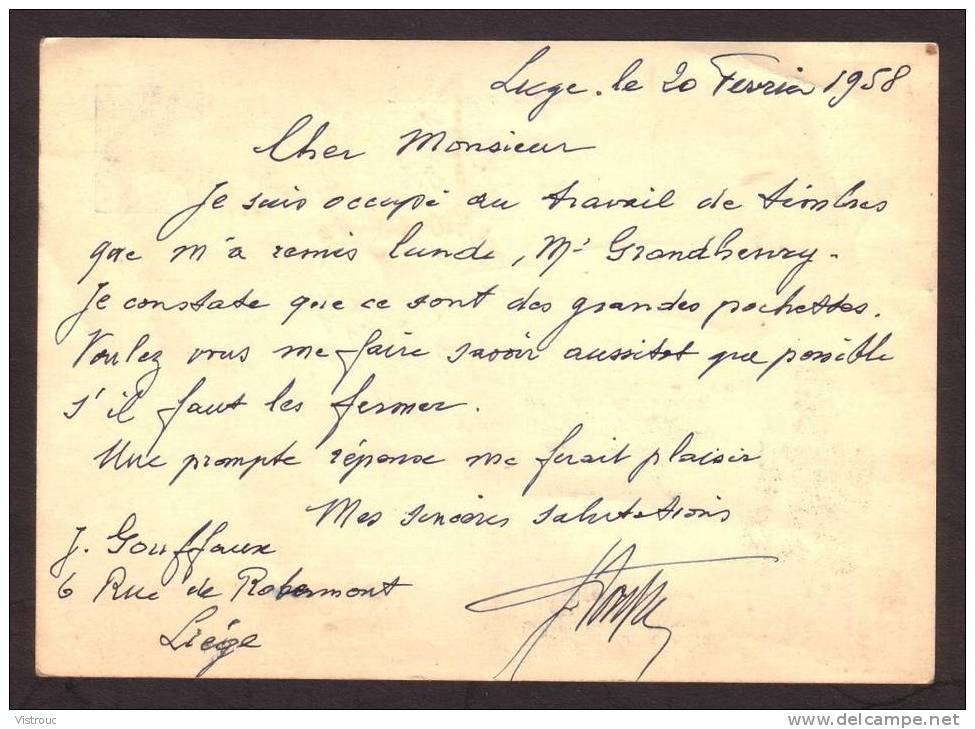 Liege. le 20 Fevrier 1958
Cher Monsieur
Je suis occupé au travail de timbres
que m'a remis lundi, Mr Grandhenry.
Je constate que ce sont des grandes pochettes.
Voulez vous me faire savoir aussitot que possible
s'il faut les fermer.
Une prompte réponse me ferait plaisir
Mes sincères salutations
J. Gouffaux
6 Rue de Robermont
Liége
Vistrouc
www.delcampe.net